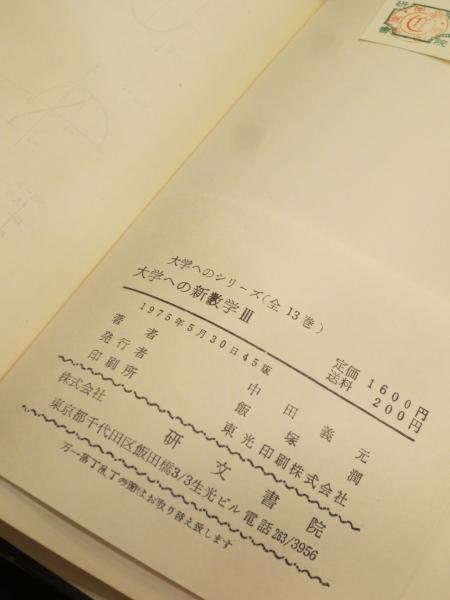 研文書院
大学へのシリーズ(全13巻)
大学への新数学III
1975年5月30日45版
定価 1600円
送料 200円
著者 中田義元
発行者 飯塚潤
印刷所 東光印刷株式会社
株式会社 研文書院
東京都千代田区飯田橋3/3生光ビル電話263/3956
万一落丁乱丁の節はお取り替え致します